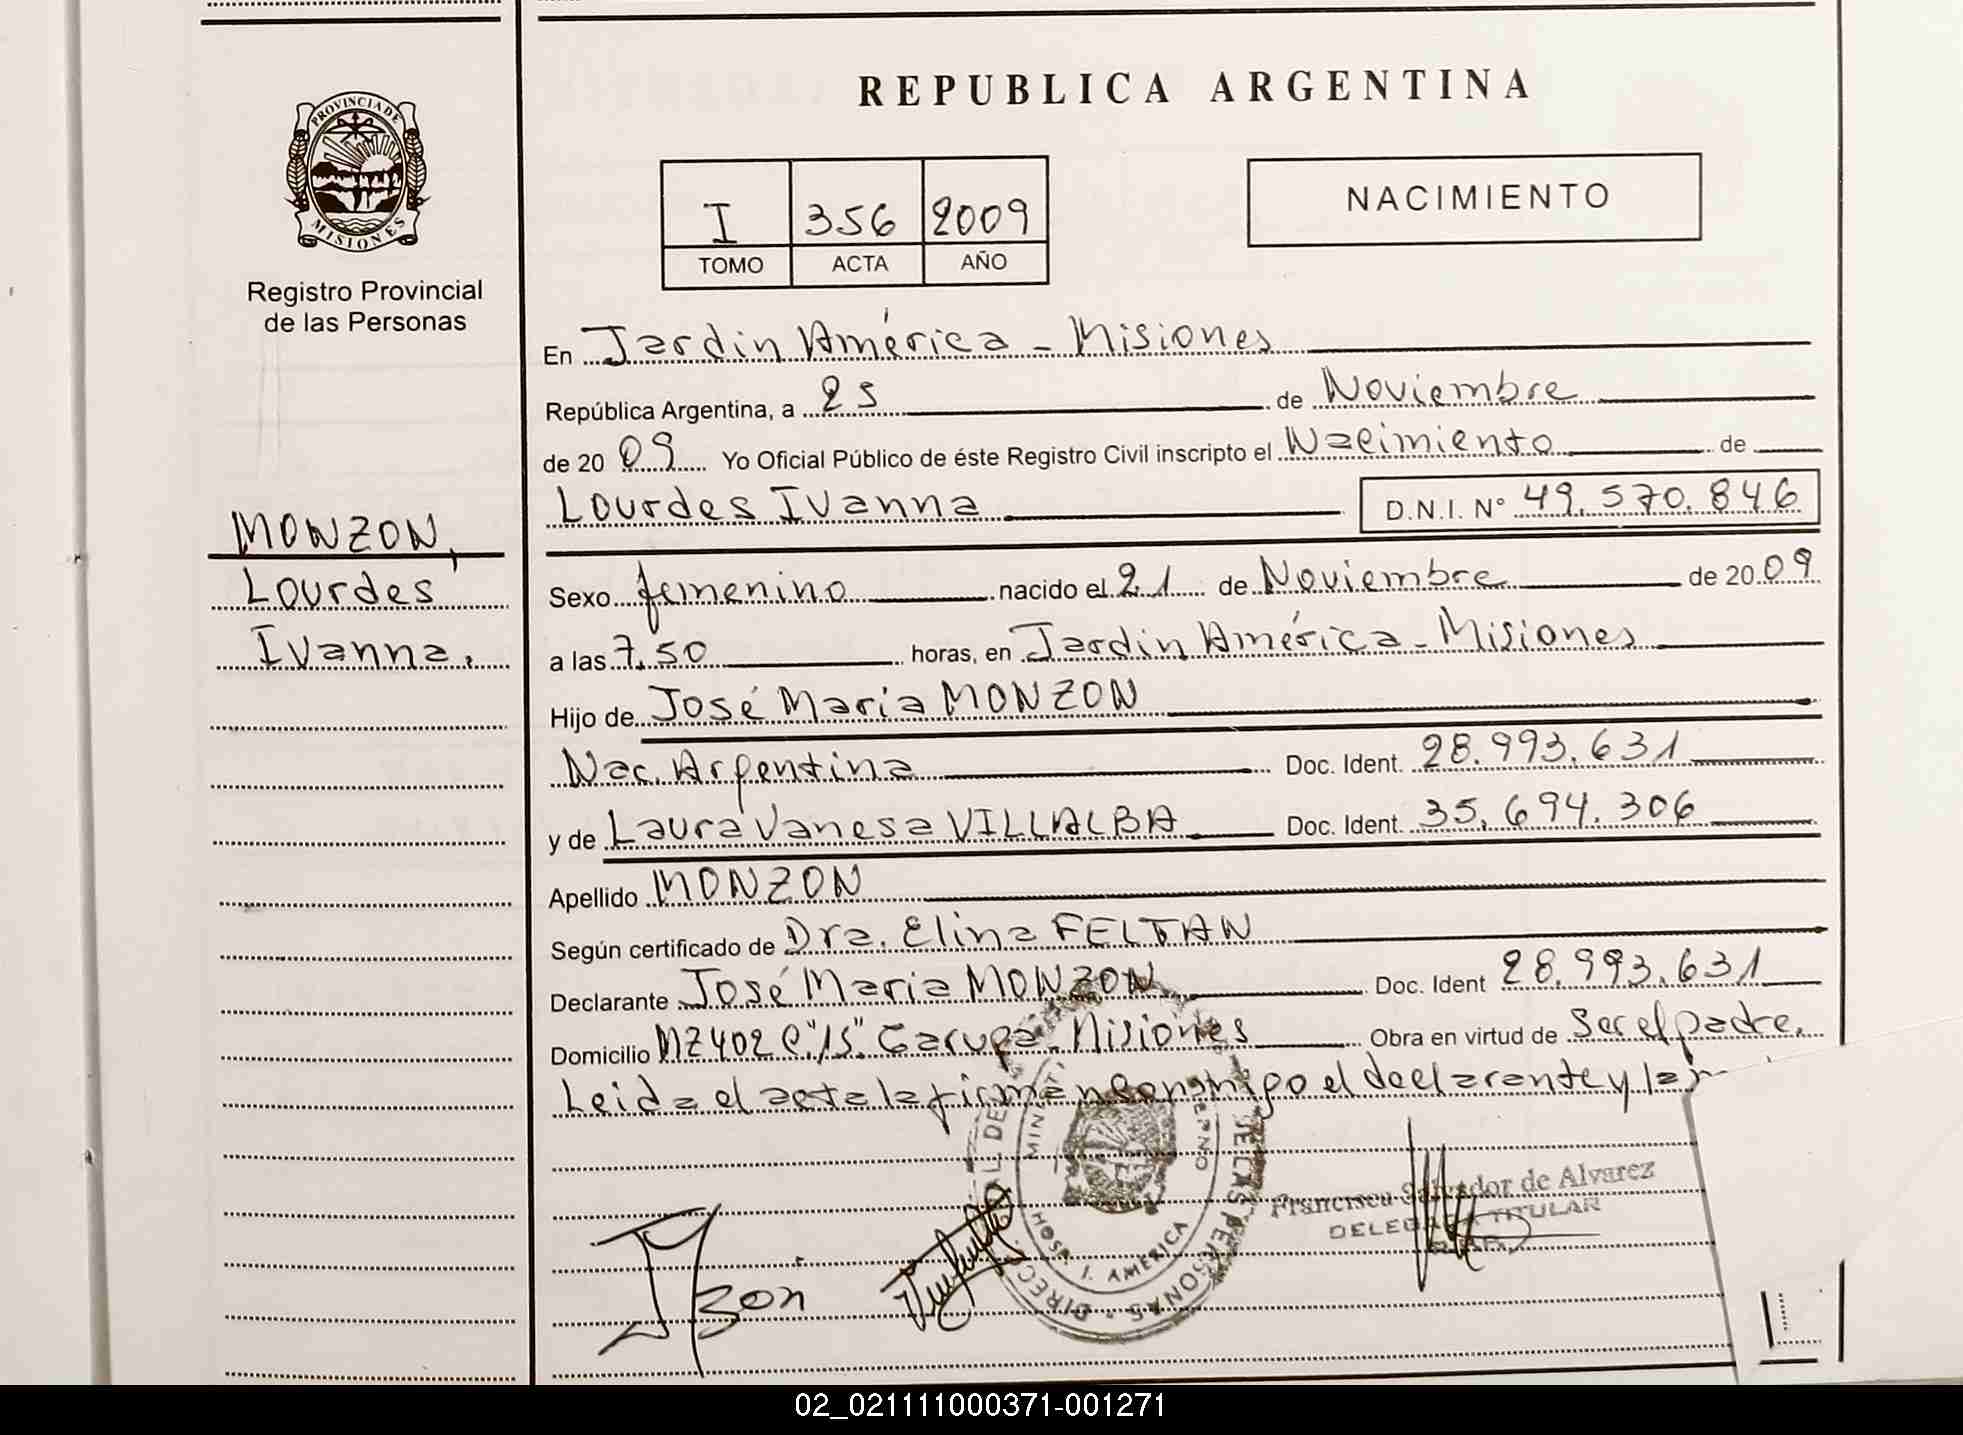 REPUBLICA ARGENTINA
PROVINCIA DE MISIONES
Registro Provincial
de las Personas
I 356 2009
TOMO ACTA AÑO
NACIMIENTO
MONZON,
Lourdes
Ivanna.
En Jardin América - Misiones
República Argentina, a 25 de Noviembre
de 2009 Yo Oficial Público de éste Registro Civil inscripto el Nacimiento de
Lourdes Ivanna D.N.I. N° 49.570.846
Sexo femenino nacido el 21 de Noviembre de 2009
a las 7.50 horas, en Jardin América - Misiones
Hijo de José Maria MONZON
Nac. Argentina Doc. Ident. 28.993.631
y de Laura Vanesa VILLALBA Doc. Ident. 35.694.306
Apellido MONZON
Según certificado de Dra. Elina FELTAN
Declarante José Maria MONZON Doc. Ident 28.993.631
Domicilio MZ 402 C."15". Garupá - Misiones Obra en virtud de Ser el padre.
Leida el acta la firman conmigo el declarante y la
HOSP. J. AMERICA
Francisca Salvador de Alvarez
DELEGADA TITULAR
02_021111000371-001271